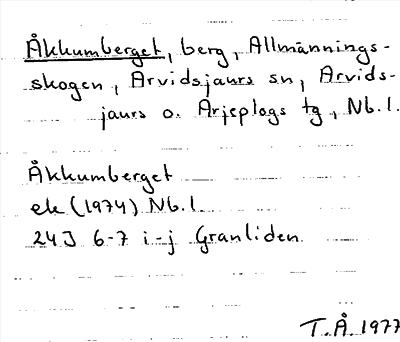 Åkkumberget, berg, Allmännings-
skogen, Arvidsjaurs sn, Arvids-
jaurs o. Arjeplogs tg, Nb. l.
Åkkumberget
ek (1974) Nb. l.
24J 6-7 i-j Granliden
T.Å. 1977